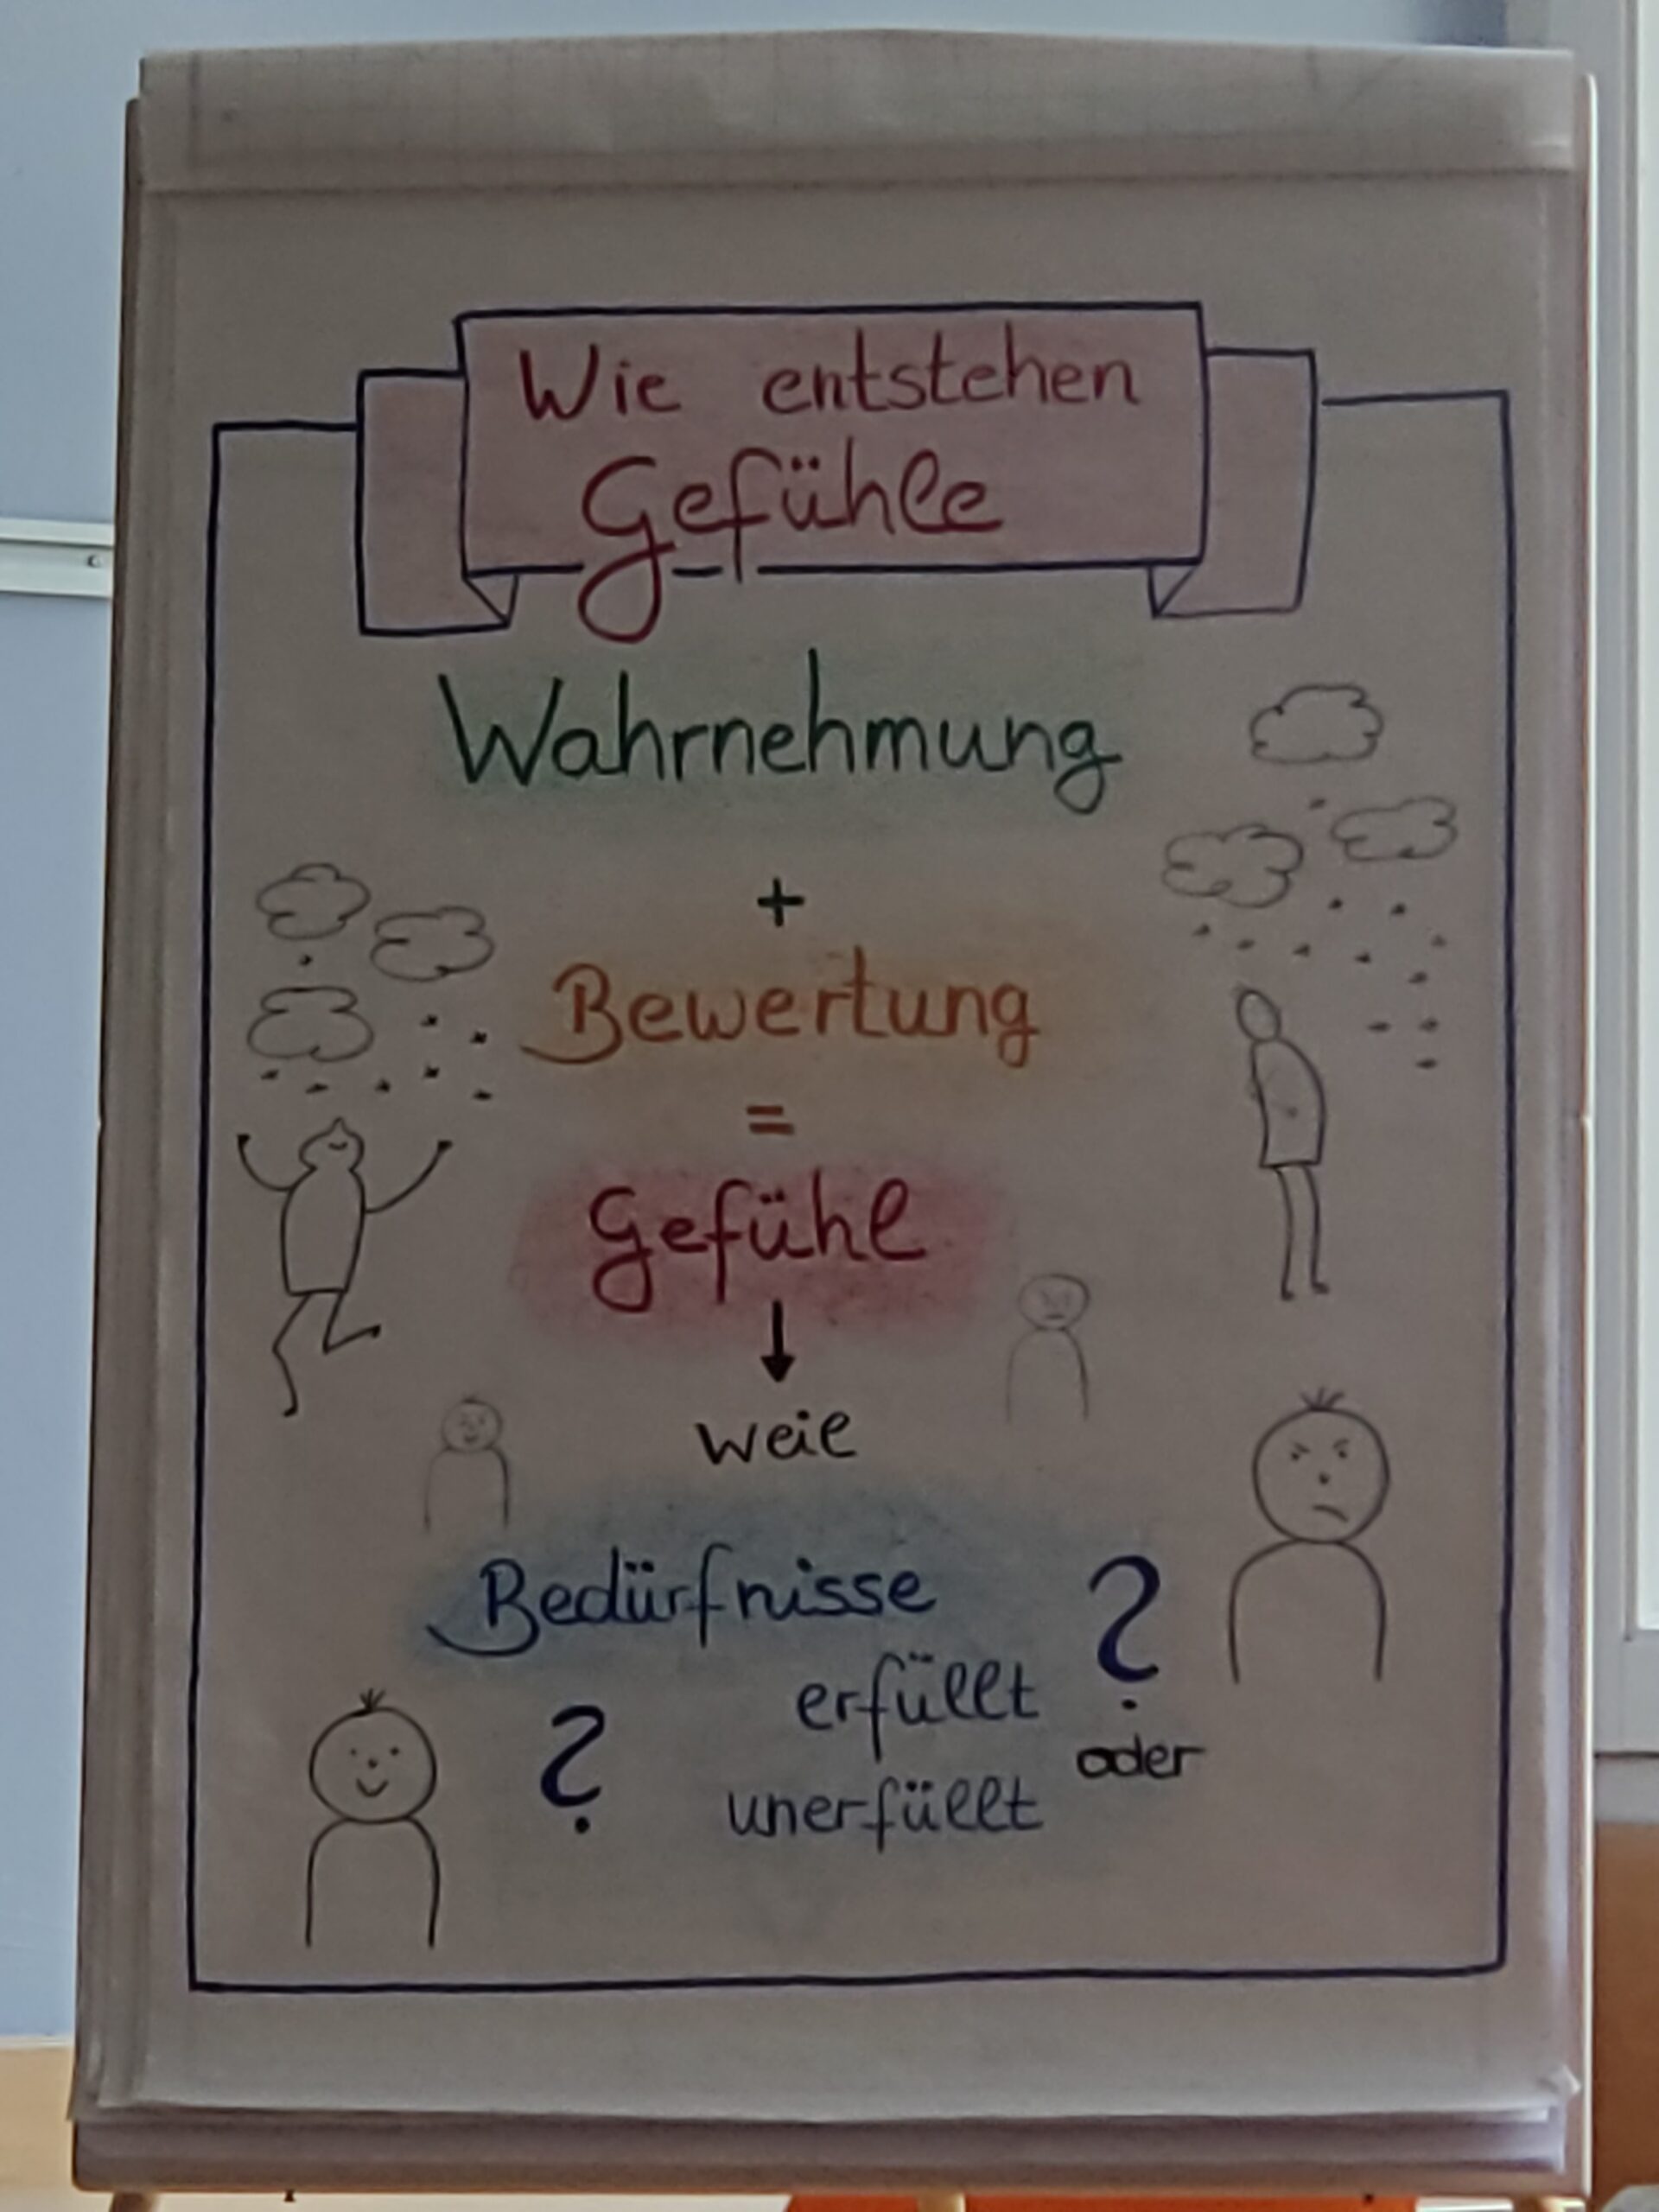 Wie entstehen
Gefühle
Wahrnehmung
+
Bewertung
=
Gefühl
↓
weil
Bedürfnisse ?
erfüllt
oder
? unerfüllt